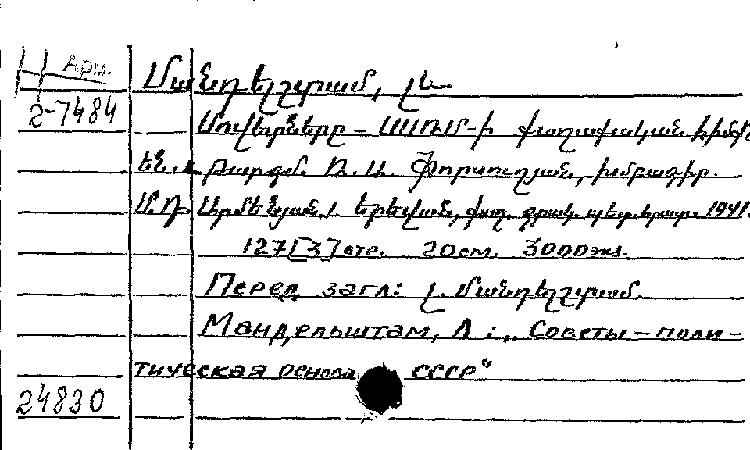 Арм.
2-7484
Մանդելշտամ, Լև
Սովետները – ՍՍՌՄ-ի քաղաքական հիմքն
են. Թարգմ. Ռ. Ա. Փորսուղյան, խմբագիր.
Մ. Դ. Արմենյան. Երևան, քաղ. գրակ. պետ. հրատ. 1941.
127[3] стр. 20см. 3000экз.
Перед загл: Լ. Մանդելշտամ.
Мандельштам, Л: „Советы – поли-
тическая основа СССР"
24830